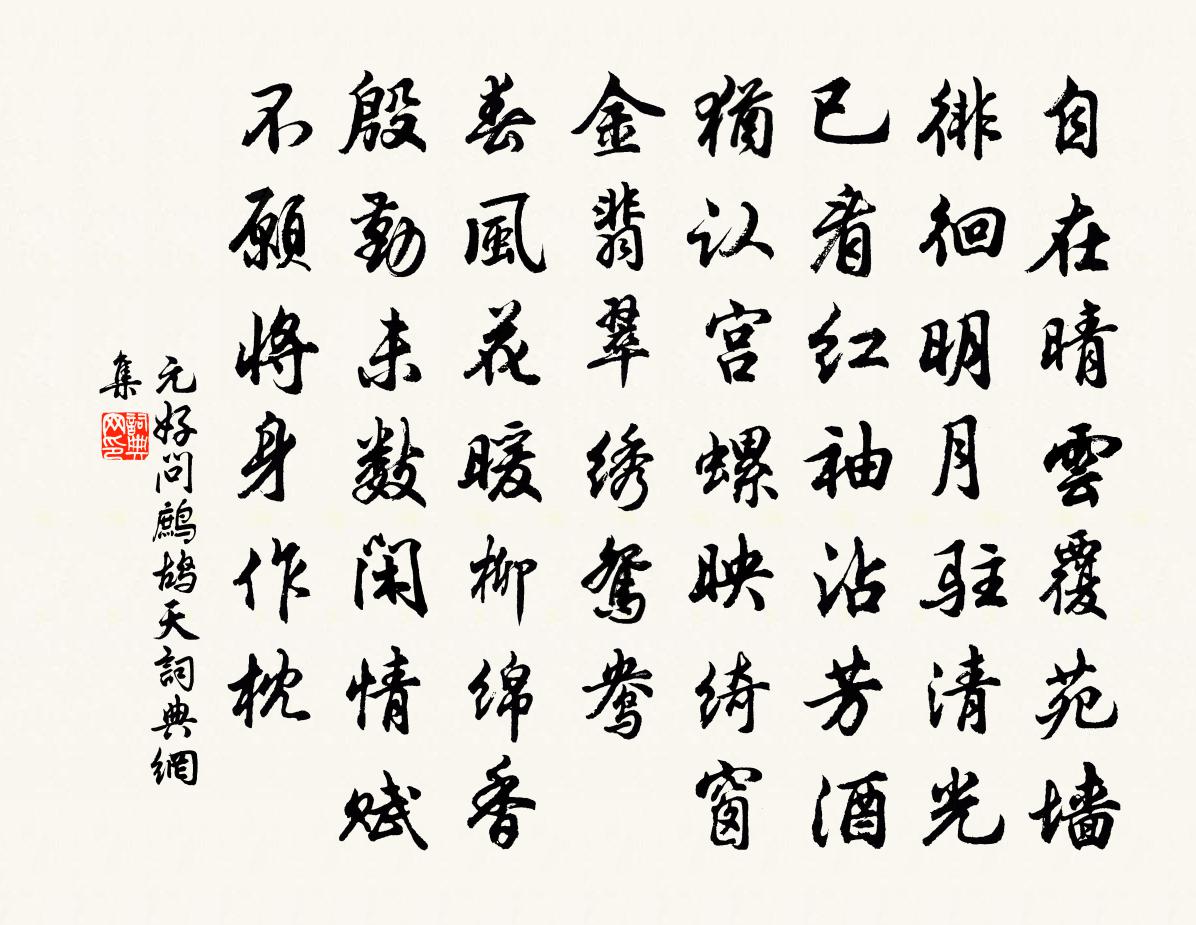 自在晴雲覆苑墙
徘徊明月驻清光
已看红袖沾芳酒
猶认宫螺映绮窗
金翡翠绣鸳鸯
春風花暖柳绵香
殷勤未数闲情赋
不願将身作枕
元好问鹧鸪天詞典網
集
詞典网印